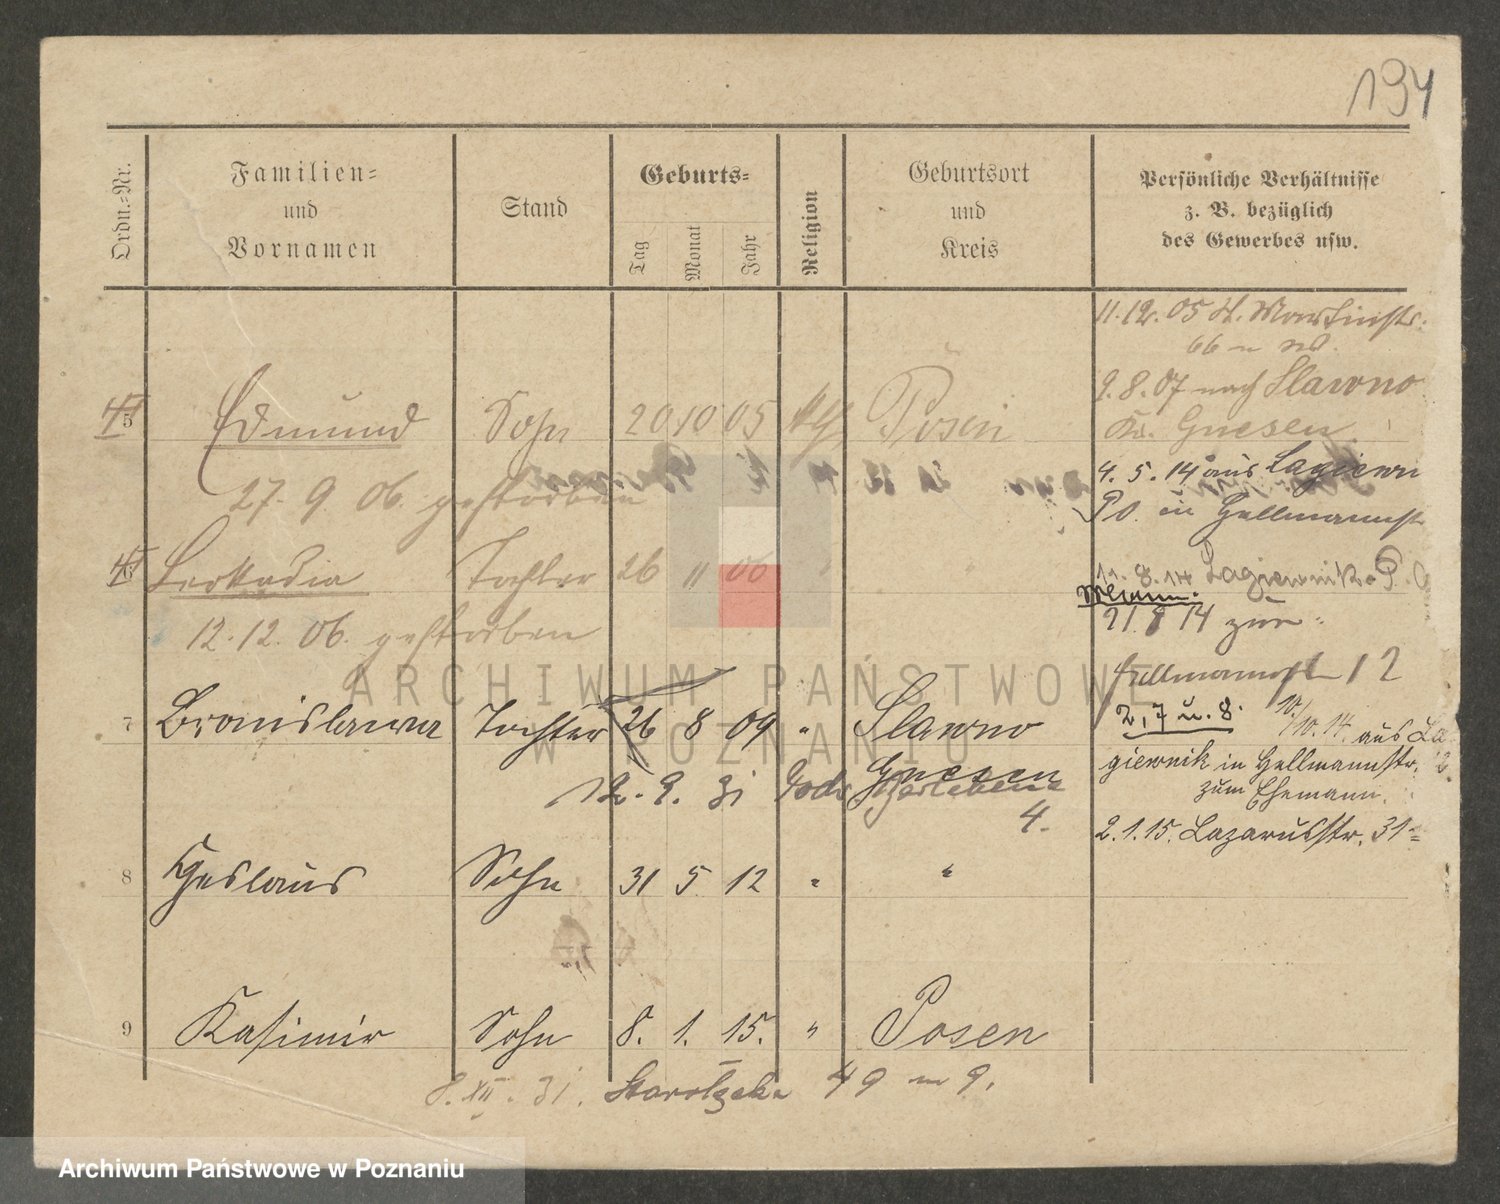 194
Ordn.-Nr.
Familien-
und
Vornamen
Stand
Geburts-
Tag
Monat
Jahr
Religion
Geburtsort
und
Kreis
Persönliche Verhältnisse
z. B. bezüglich
des Gewerbes usw.
11.12.05 St. Martinstr.
66
9.8.07 nach Slawno
Kr. Gnesen
5 Edmund Sohn 20 10 05 kth Posen
4.5.14 aus Lagiewn
27.9.06. gestorben
Po. in Hellmannst
6 Leokadia Tochter 26 11 06 "
11.8.14 Lagiewnik. P.
12.12.06. gestorben
21 8 14 zur
Hellmannst 12
7 Bronislawa Tochter 26 8 09 " Slawno
Gnesen
2, 7 u. 8. 10/10.14. aus La
giewnik in Hellmannstr.
zum Ehemann.
12.9.31
4.
2.1.15. Lazarusstr. 31
8 Zeslaus Sohn 31 5 12 " "
9 Kasimir Sohn 8. 1. 15. " Posen
8.XII.31. Starołęcka 49 m 9.
ARCHIWUM PAŃSTWOWE
W POZNANIU
Archiwum Państwowe w Poznaniu